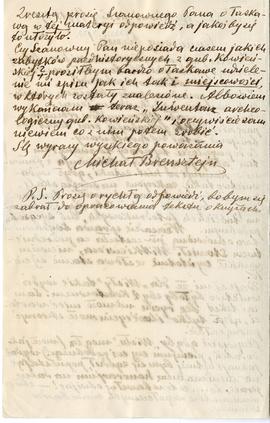 Zresztą proszę Szanownego Pana o łaskawą
w tej materyi odpowiedź, a jakoby się
to
Czy Szanowny Pan nie posiada czasem jakich
zabytków przedhistorycznych z gub. Kowieńskiej
prosiłbym bardzo o łaskawe udzielenie
mi spisu jak ich tak i miejscowości,
w których zostały znalezione. Albowiem
wykańczam teraz "Inwentarz archeologiczny
gub. Kowieńskiej" i
niewiem co z nim potem zrobić.
Są wyrazy wysokiego poważania
Michał Brensztejn
P.S. Proszę o rychłą odpowiedź, bobym się
zabrał do opracowania szkicu o